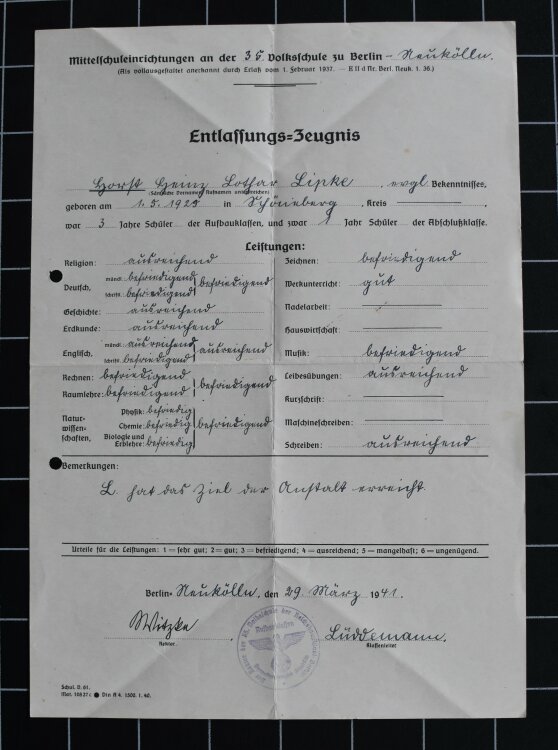 Mittelschuleinrichtungen an der 35. Volksschule zu Berlin - Neukölln.
(Als vollausgestaltet anerkannt durch Erlaß vom 1. Februar 1937. — E II d Nr. Berl. Neuk. 1. 36.)
Entlassungs=Zeugnis
Horst Heinz Lothar Lipke, evgl. Bekenntnisses,
(Sämtliche Vornamen, Rufnamen unterstreichen)
geboren am 1.5.1925 in Schöneberg, Kreis
war 3 Jahre Schüler der Aufbauklassen, und zwar 1 Jahr Schüler der Abschlußklasse.
Leistungen:
Religion: ausreichend
Deutsch, mündl. befriedigend befriedigend
schriftl. befriedigend
Geschichte: ausreichend
Erdkunde: ausreichend
Englisch, mündl. ausreichend ausreichend
schriftl. befriedigend
Rechnen: befriedigend befriedigend
Raumlehre: befriedigend
Natur-wissen-schaften, Physik: befriedig befriedigend
Chemie: befriedig
Biologie und Erblehre: befriedig
Zeichnen: befriedigend
Werkunterricht: gut
Nadelarbeit:
Hauswirtschaft:
Musik: befriedigend
Leibesübungen: ausreichend
Kurzschrift:
Maschineschreiben:
Schreiben: ausreichend
Bemerkungen:
L. hat das Ziel der Anstalt erreicht.
Urteile für die Leistungen: 1 = sehr gut; 2 = gut; 3 = befriedigend; 4 = ausreichend; 5 = mangelhaft; 6 = ungenügend.
Berlin- Neukölln, den 29. März 1941.
Witzke
Rektor.
Lüddemann.
Klassenleiter
Schul. B. 61.
Mat. 10827c Din A 4. 1500. 1. 40.